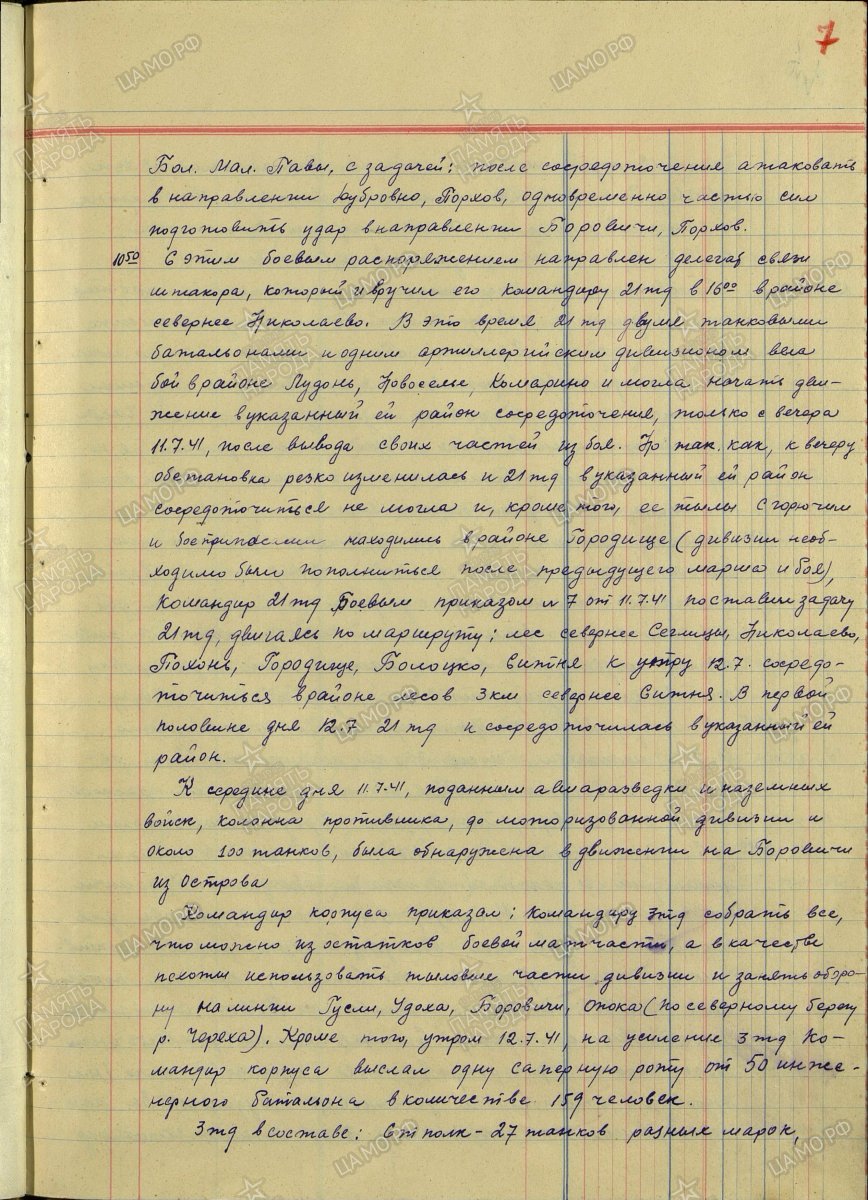 7
Бол. Мал. Павы, с задачей: после сосредоточения атаковать
в направлении Дубровно, Порхов, одновременно частью сил
подготовить удар в направлении Боровичи, Порхов.
10⁵⁰ С этим боевым распоряжением направлен делегат связи
штакора, который и вручил его командиру 21 тд в 16⁰⁰ в районе
севернее Николаево. В это время 21 тд двумя танковыми
батальонами и одним артиллерийским дивизионом вела
бой в районе Лудонь, Новоселье, Комарино и могла начать дви-
жение в указанный ей район сосредоточения, только с вечера
11.7.41, после вывода своих частей из боя. Но так как, к вечеру
обстановка резко изменилась и 21 тд в указанный ей район
сосредоточиться не могла и, кроме того, ее тылы с горючим
и боеприпасами находились в районе Городище (дивизии необ-
ходимо было пополниться после предыдущего марша и боя),
командир 21 тд Боевым приказом № 7 от 11.7.41 поставил задачу
21 тд, двигаясь по маршруту: лес севернее Сеглицы, Николаево,
Похонь, Городище, Болоцко, Ситня к утру 12.7. сосредо-
точиться в районе лесов 3 км севернее Ситня. В первой
половине дня 12.7 21 тд и сосредоточилась в указанный ей
район.
К середине дня 11.7.41, по данным авиаразведки и наземных
войск, колонна противника, до моторизованной дивизии и
около 100 танков, была обнаружена в движении на Боровичи
из Острова
Командир корпуса приказал: Командиру 3 тд собрать все,
что можно из остатков боевой матчасти, а в качестве
пехоты использовать тыловые части дивизии и занять оборо-
ну на линии Гусли, Удоха, Боровичи, Опока (по северному берегу
р. Череха). Кроме того, утром 12.7.41, на усиление 3 тд Ко-
мандир корпуса выслал одну саперную роту от 50 инже-
нерного батальона в количестве 159 человек.
3 тд в составе: 6 тп полк - 27 танков разных марок,
ПАМЯТЬ НАРОДА
ЦАМО.РФ